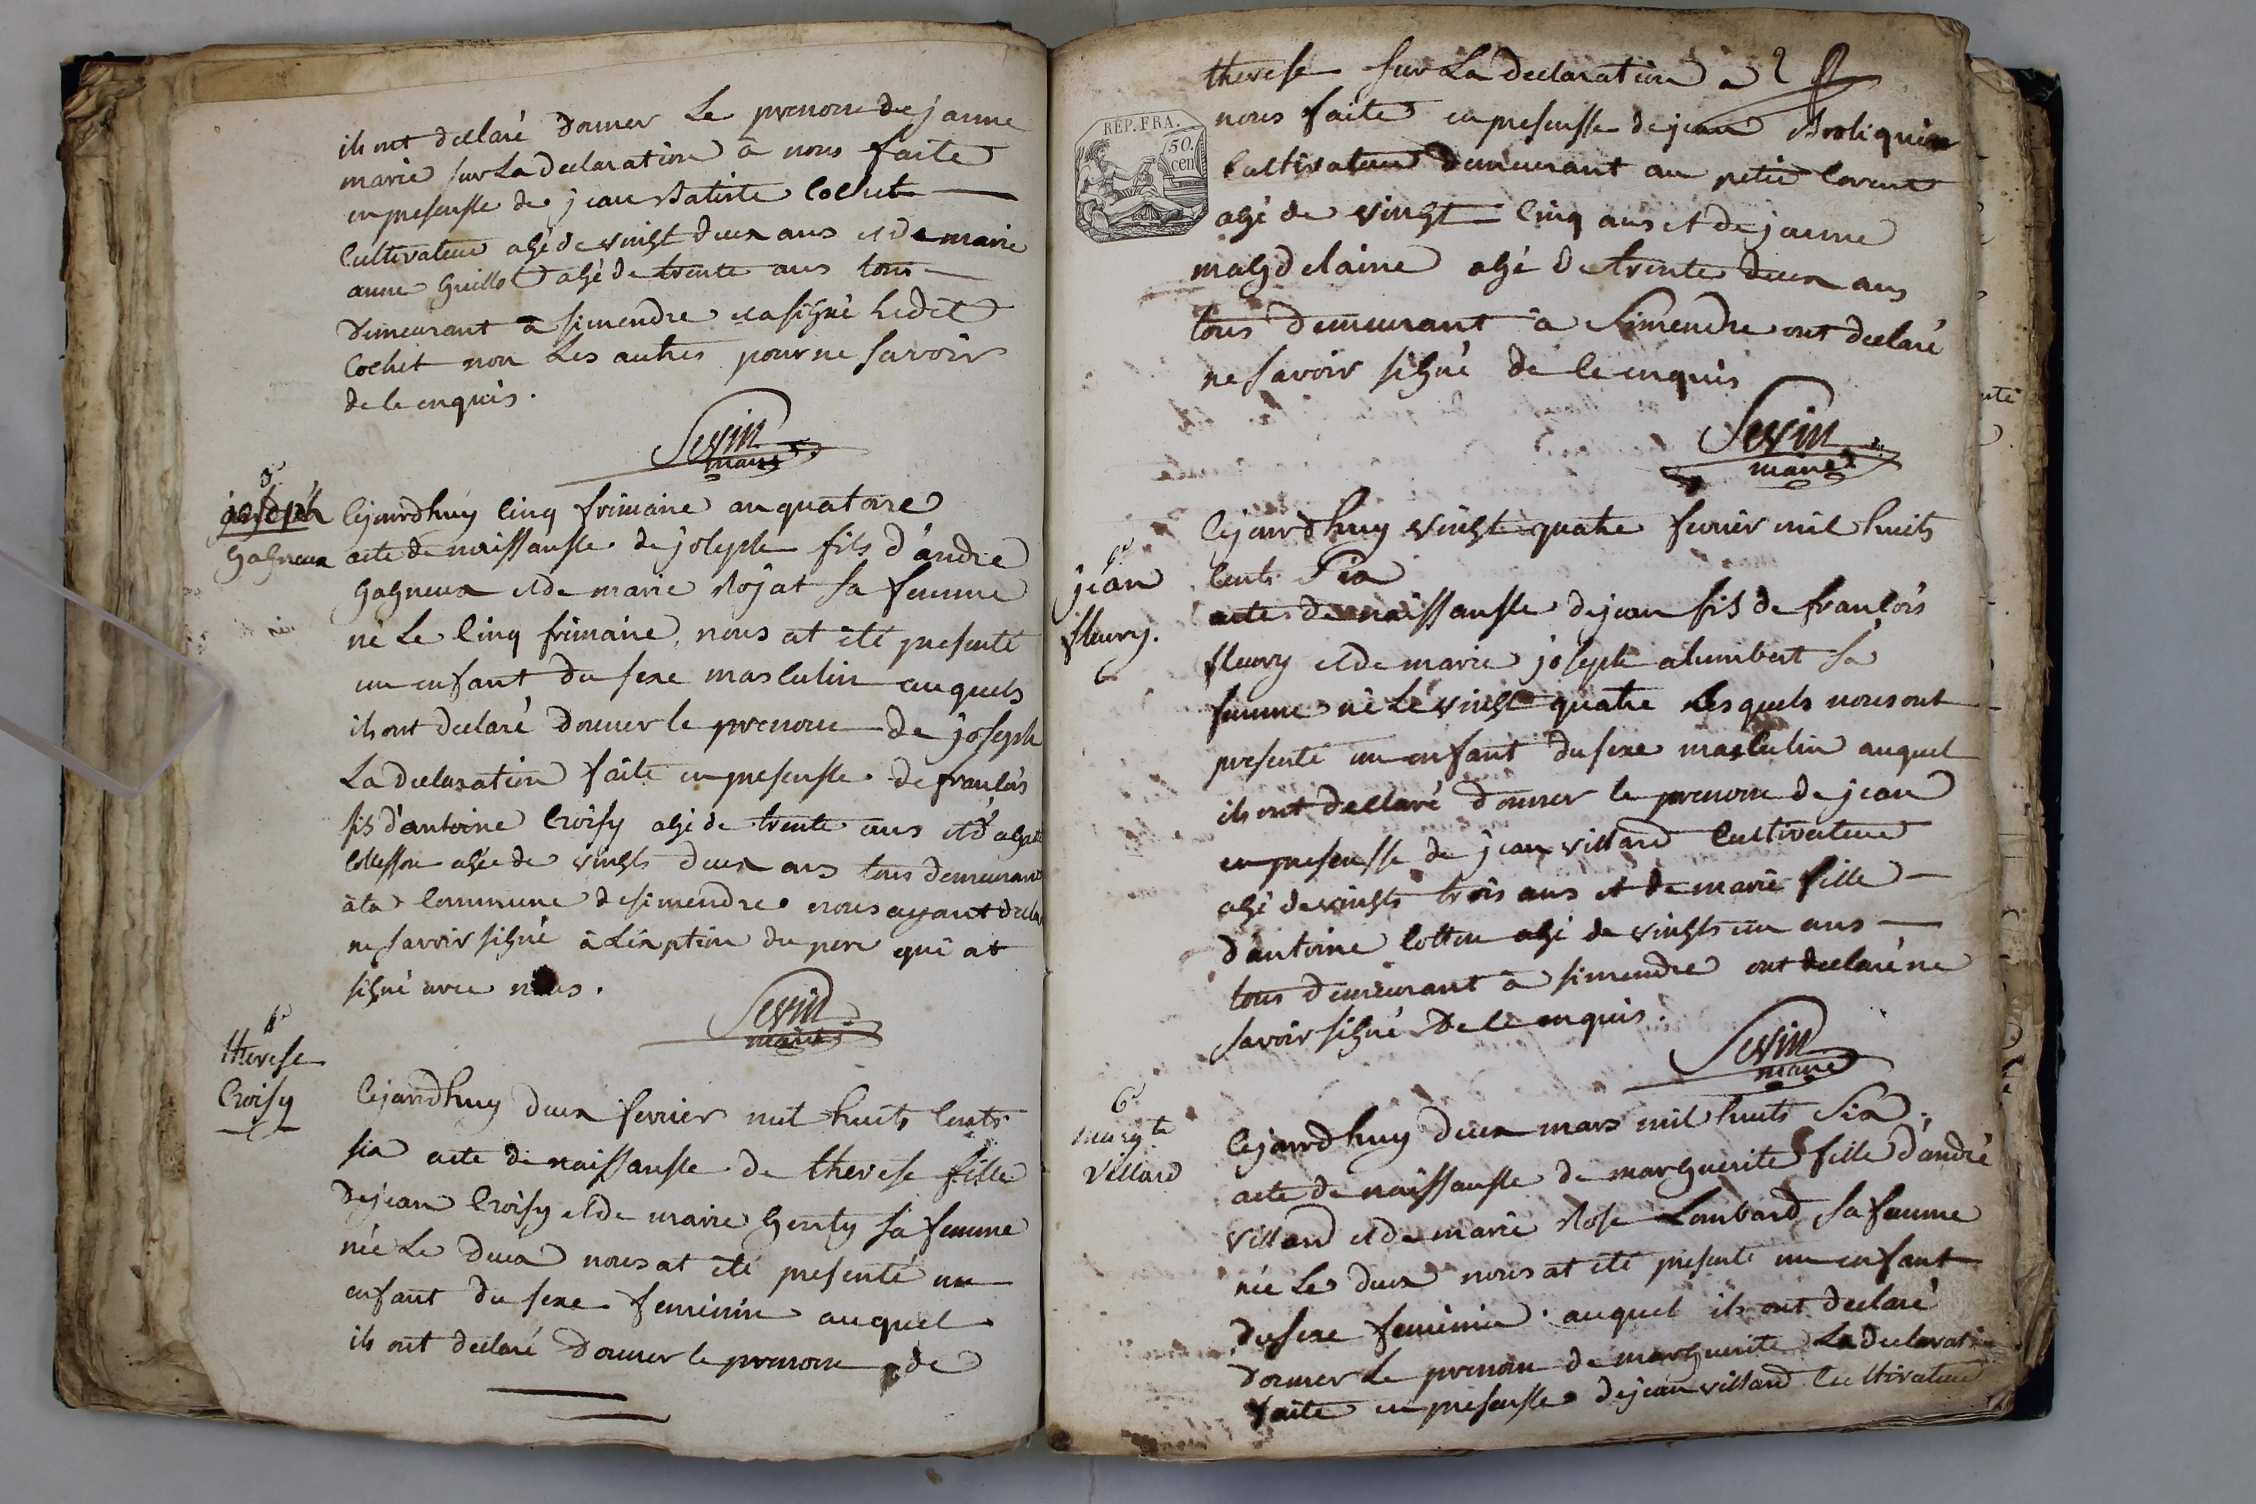 ils ont declaré donner Le prenom de janne
marie sur La declaration à nous faite
en presensse de jean Batiste Cochet
Cultivateur agé de vingt deux ans et de marie
anne Guillot agé de trente ans tous
demeurant a simendre et a signé Ledit
Cochet non Les autres pour ne savoir
de le enquis.
Sevin
maire
3e
joseph
Gagneux
Cejourdhuy Cinq frimaire an quatorze
acte de naissansse de joseph fils d'andre
Gagneux et de marie Rojat sa femme
né Le Cinq frimaire, nous at été presenté
un enfant du sexe masculin auquels
ils ont declaré donner le prenom de joseph
La declaration faite en presensse de francois
fils d'antoine Croisy agé de trente ans et d'
agée de vingts deux ans tous demeurant
à la Commune de simendre nous ayant
ne savoir signé à L'exption du pere qui at
signé avec nous.
Sevin
maire
4e
therese
Croisy
Cejourdhuy deux fevrier mil huits Cents
six acte de naissansse de therese fille
de jean Croisy et de marie Genty sa femme
née Le deux nous at été presenté un
enfant du sexe feminin auquel
ils ont declaré donner le prenom de
therese sur La declaration a 2
nous faite en presensse de jean
Cultivateur demeurant au petit
agé de vingt Cinq ans et de janne
magdelaine agé de trente deux ans
tous demeurant à Simendre ont declaré
ne savoir signé de le enquis
REP. FRA.
50.
cen
Sevin
maire
5e
jean
fleury.
6
Cejourdhuy vingt quatre fevrier mil huits
Cents Six
acte de naissansse de jean fils de francois
fleury et de marie joseph alumbert sa
femme né Le vingt quatre Lesquels nous ont
presenté un enfant du sexe masculin auquel
ils ont declaré donner le prenom de jean
en presensse de jean villard Cultivateur
agé de vingts trois ans et de marie fille
d'antoine Cotton agé de vingts un ans
tous demeurant à simendre ont declaré ne
savoir signé De le enquis.
Sevin
maire
6e
margte
Villard
Cejourdhuy deux mars mil huits Six.
acte de naissansse de marguerite fille d'andré
villard et de marie Rose Lombard sa femme
née Le deux nous at été presenté un enfant
du sexe feminin auquel ils ont declaré
donner Le prenom de marguerite La declaration
faite en presensse de jean villard Cultivateur